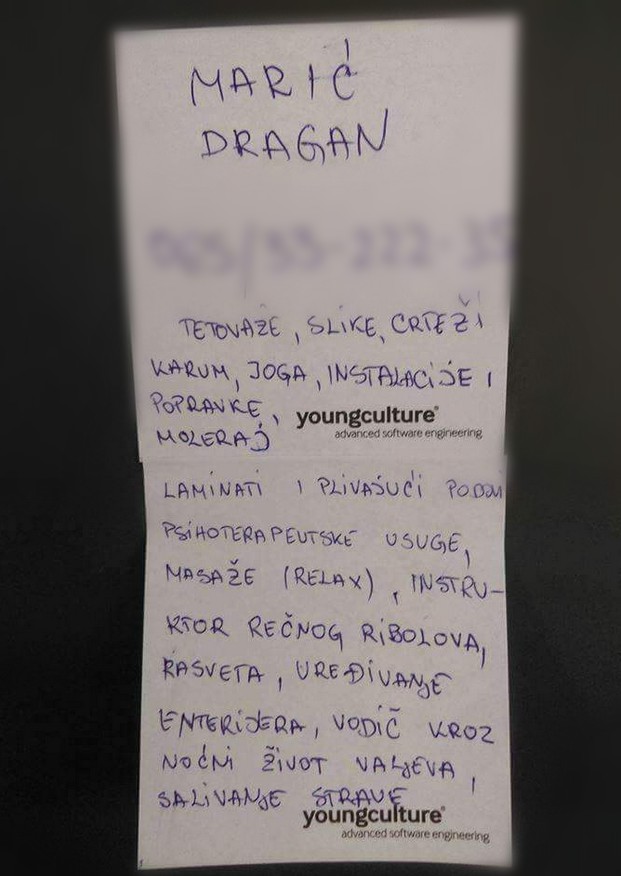 MARIĆ
DRAGAN
TETOVAŽE, SLIKE, CRTEŽI
KARUM, JOGA, INSTALACIJE I
POPRAVKE,
youngculture
advanced software engineering
MOLERAJ
LAMINATI I PLIVAJUĆI PODOVI
PSIHOTERAPEUTSKE USUGE,
MASAŽE (RELAX), INSTRU-
KTOR REČNOG RIBOLOVA,
RASVETA, UREĐIVANJE
ENTERIJERA, VODIČ KROZ
NOĆNI ŽIVOT VALJEVA,
SALIVANJE STRAVE
youngculture
advanced software engineering